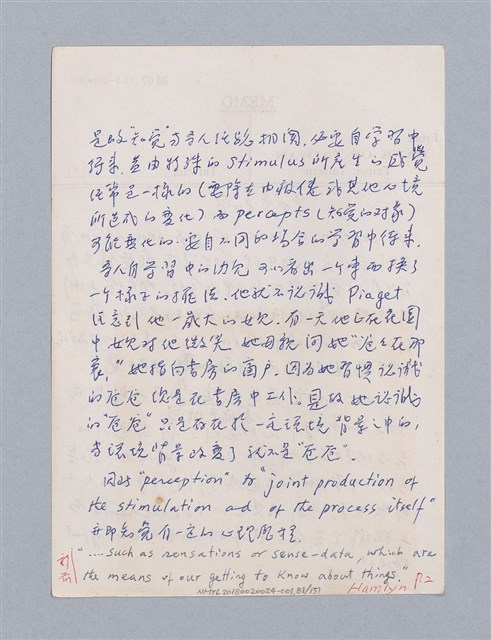 是故"知覺"与吾人经验相関,必要自学習中
得来,並由特殊的 stimulus 所產生的感覺
经常是一樣的(要除去由疲倦或其他心境
所造成的变化)而 percepts (知覚的対象)
可能变化的.要自不同的場合的学習中得来.
吾人自学習中的幼兒 可以看出一個東西換了
一個樣子的擺法.他就不認識 Piaget
注意到他一歲大的女兒.有一天他正在花園
中 女兒对他微笑 她母親问她"爸爸在那
裏,"她指向書房的窗户.因為她習慣認識
的爸爸 总是在書房中工作.是故她認識的
的"爸爸"只是存在於一定環境背景之中的,
当環境背景改变了就不是"爸爸".
因此"perception"为"joint production of
the stimulation and of the process itself"
亦即知覚有一定的心理歷程
"....such as sensations or sense-data, which are
the means of our getting to know about things."
Hamlyn P.2
NMTL20180020024-001,81/151
MEMO